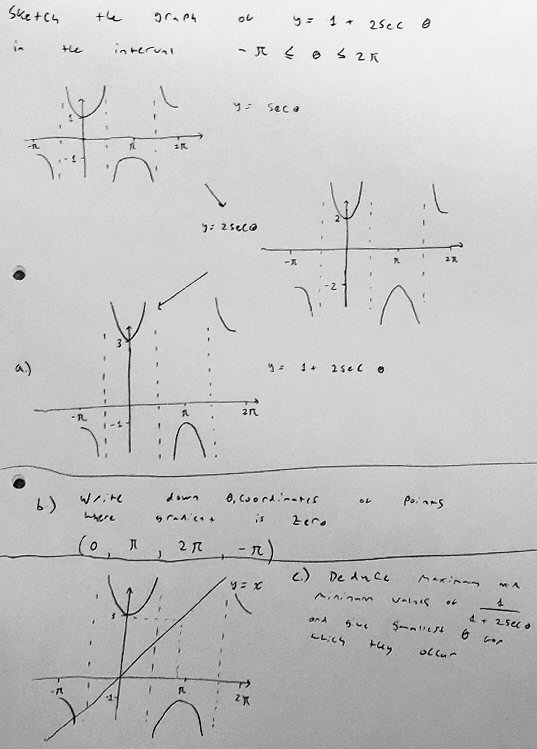 Sketch the graph of y = 1 + 2sec θ
in the interval -π ≤ θ ≤ 2π
y = secθ
1
-1
-π
π
2π
y = 2secθ
2
-2
-π
π
2π
a.)
y = 1 + 2sec θ
3
-1
-π
π
2π
b.) Write down θ, coordinates of points
where gradient is zero
(0, π, 2π, -π)
y = x
3
-1
-π
π
2π
c.) Deduce maximum and
minimum values of 1/(1 + 2secθ)
and give smallest θ for
which they occur